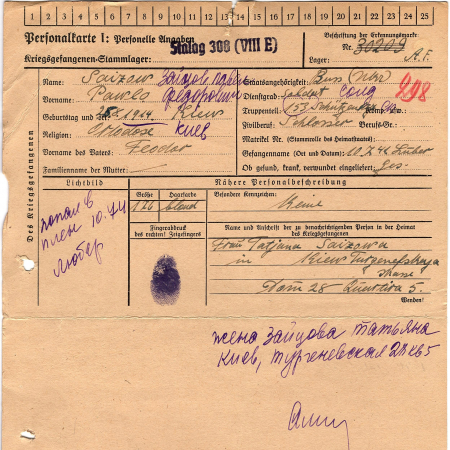 1 2 3 4 5 6 7 8 9 10 11 12 13 14 15 16 17 18 19 20 21 22 23 24 25
Personalkarte I: Personelle Angaben
Kriegsgefangenen-Stammlager: Stalag 308 (VIII E)
Beschriftung der Erkennungsmarke
Nr. 30209
Lager: A.F.
Des Kriegsgefangenen
Name: Saizow Зайцов Павел
Vorname: Pawlo Федорович
Geburtstag und -ort: 1914 Kiew
Religion: Ortodose Киев
Vorname des Vaters: Feodor
Familienname der Mutter:
Staatsangehörigkeit: Russ (Ukr)
Dienstgrad: Soldat Солд
298
Truppenteil: 53 Schützen
Zivilberuf: Schlosser Berufs-Gr.:
Matrikel Nr. (Stammrolle des Heimatstaates):
Gefangennahme (Ort und Datum): 10.7.41 Liuber
Ob gesund, krank, verwundet eingeliefert: ges.
Lichtbild
попал в
плен 10.7.41
Любер
Nähere Personalbeschreibung
Größe
176
Haarfarbe
blond
Besondere Kennzeichen:
Keine
Fingerabdruck
des rechten! Zeigefingers
Name und Anschrift der zu benachrichtigenden Person in der Heimat
des Kriegsgefangenen
Frau Tatjana Saizowa
in Kiew Turgenefskaja
Strasse
Dom 28 Quartira 5.
Wenden!
жена Зайцова Татьяна
Киев, Тургеневская 28 кв 5